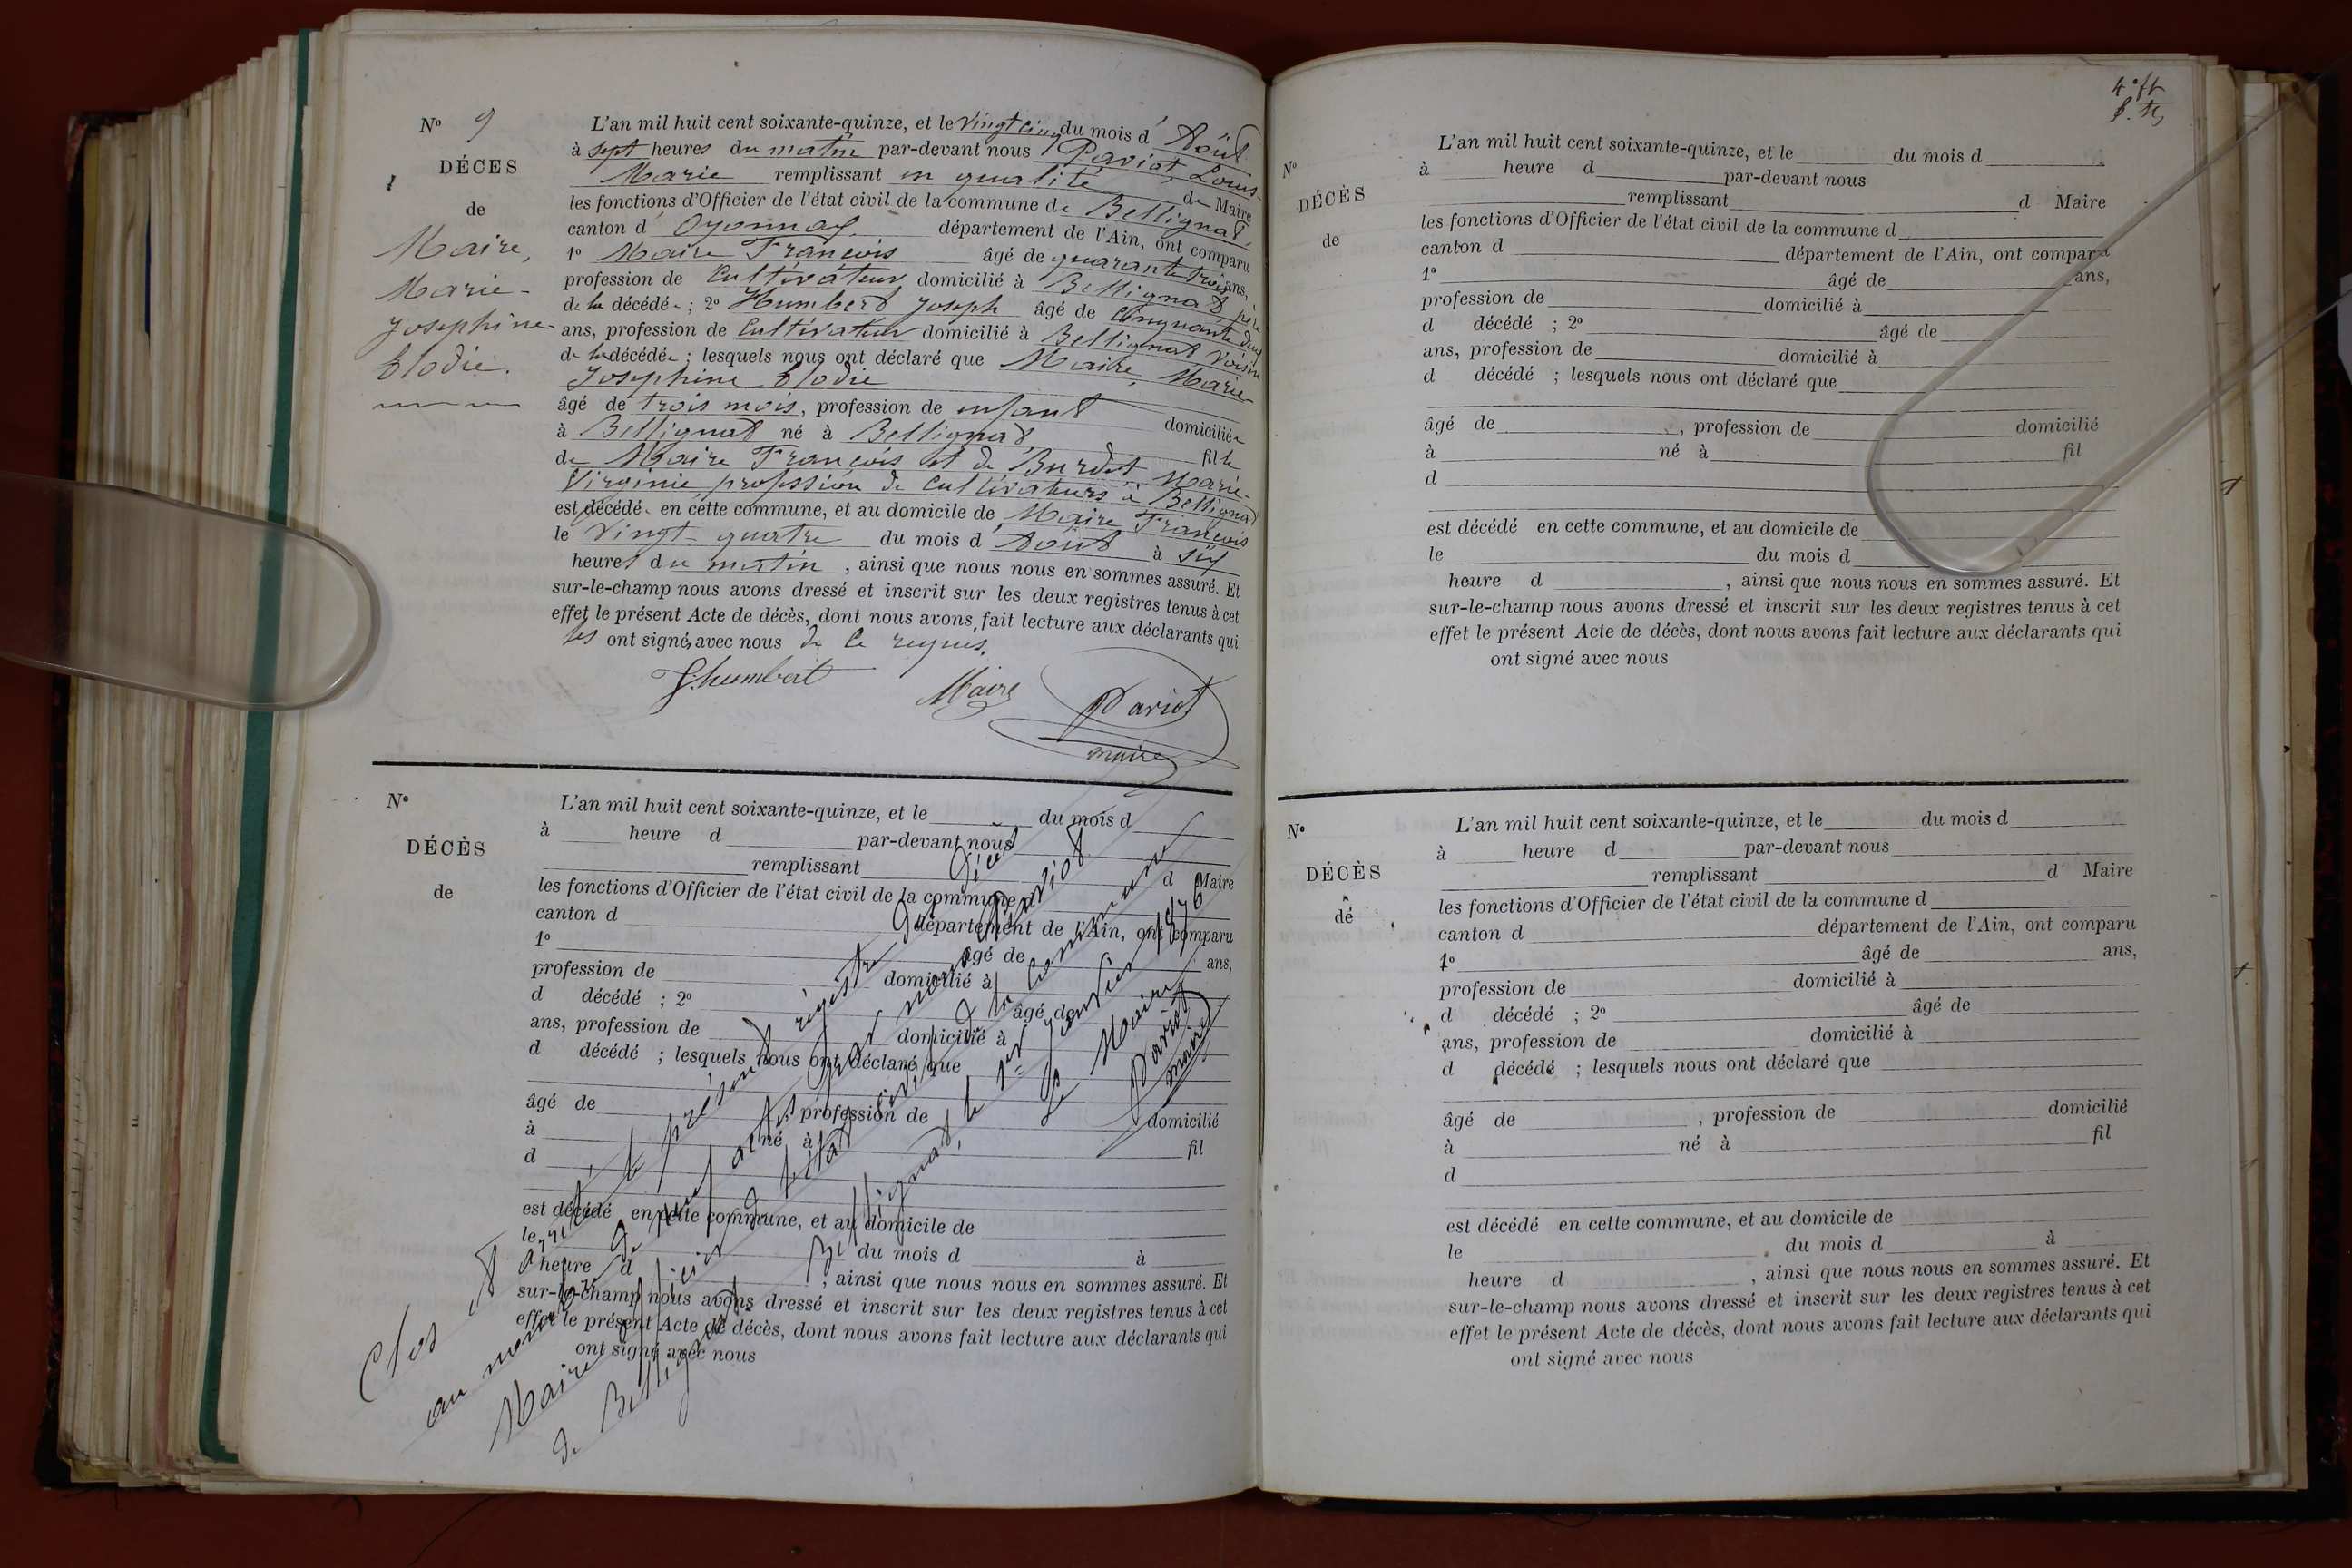 Nº 9
DÉCES
de
Maire,
Marie-
Josephine-
Elodie.
L'an mil huit cent soixante-quinze, et le vingt cinq du mois d' Août
à sept heures du matin par-devant nous Paviot, Louis-
Marie remplissant en qualité de Maire
les fonctions d'Officier de l'état civil de la commune de Bellignat,
canton d' Oyonnax. département de l'Ain, ont comparu
1º Maire François âgé de quarante trois ans,
profession de Cultivateur domicilié à Bellignat père
de la décédée ; 2º Humbert Joseph âgé de cinquante deux
ans, profession de Cultivateur domicilié à Bellignat voisin
de la décédée ; lesquels nous ont déclaré que Maire, Marie-
Josephine Elodie
âgé de trois mois, profession de enfant domiciliée
à Bellignat né à Bellignat fille
de Maire François et de Burdet Marie-
Virginie, profession de cultivateurs à Bellignat
est décédée en cette commune, et au domicile de Maire François
le vingt-quatre du mois d' Août à six
heures du matin , ainsi que nous nous en sommes assuré. Et
sur-le-champ nous avons dressé et inscrit sur les deux registres tenus à cet
effet le présent Acte de décès, dont nous avons fait lecture aux déclarants qui
les ont signé avec nous de ce requis.
J. humbert
Maire
Paviot
maire
Nº
DÉCÈS
de
L'an mil huit cent soixante-quinze, et le du mois d
à heure d par-devant nous
remplissant d Maire
les fonctions d'Officier de l'état civil de la commune d
canton d département de l'Ain, ont comparu
1º âgé de ans,
profession de domicilié à
d décédé ; 2º âgé de
ans, profession de domicilié à
d décédé ; lesquels nous ont déclaré que
âgé de , profession de domicilié
à né à fil
d
est décédé en cette commune, et au domicile de
le du mois d à
heure d , ainsi que nous nous en sommes assuré. Et
sur-le-champ nous avons dressé et inscrit sur les deux registres tenus à cet
effet le présent Acte de décès, dont nous avons fait lecture aux déclarants qui
ont signé avec nous
Clos et arrêté le présent registre de décès
au nombre de neuf actes par nous Paviot
Maire officier de l'état civil de la commune
de Bellignat.
Bellignat, le 1er Janvier 1876
Le Maire
Paviot
maire
Nº
DÉCÈS
de
L'an mil huit cent soixante-quinze, et le du mois d
à heure d par-devant nous
remplissant d Maire
les fonctions d'Officier de l'état civil de la commune d
canton d département de l'Ain, ont comparu
1º âgé de ans,
profession de domicilié à
d décédé ; 2º âgé de
ans, profession de domicilié à
d décédé ; lesquels nous ont déclaré que
âgé de , profession de domicilié
à né à fil
d
est décédé en cette commune, et au domicile de
le du mois d
heure d , ainsi que nous nous en sommes assuré. Et
sur-le-champ nous avons dressé et inscrit sur les deux registres tenus à cet
effet le présent Acte de décès, dont nous avons fait lecture aux déclarants qui
ont signé avec nous
Nº
DÉCÈS
de
L'an mil huit cent soixante-quinze, et le du mois d
à heure d par-devant nous
remplissant d Maire
les fonctions d'Officier de l'état civil de la commune d
canton d département de l'Ain, ont comparu
1º âgé de ans,
profession de domicilié à
d décédé ; 2º âgé de
ans, profession de domicilié à
d décédé ; lesquels nous ont déclaré que
âgé de , profession de domicilié
à né à fil
d
est décédé en cette commune, et au domicile de
le du mois d à
heure d , ainsi que nous nous en sommes assuré. Et
sur-le-champ nous avons dressé et inscrit sur les deux registres tenus à cet
effet le présent Acte de décès, dont nous avons fait lecture aux déclarants qui
ont signé avec nous